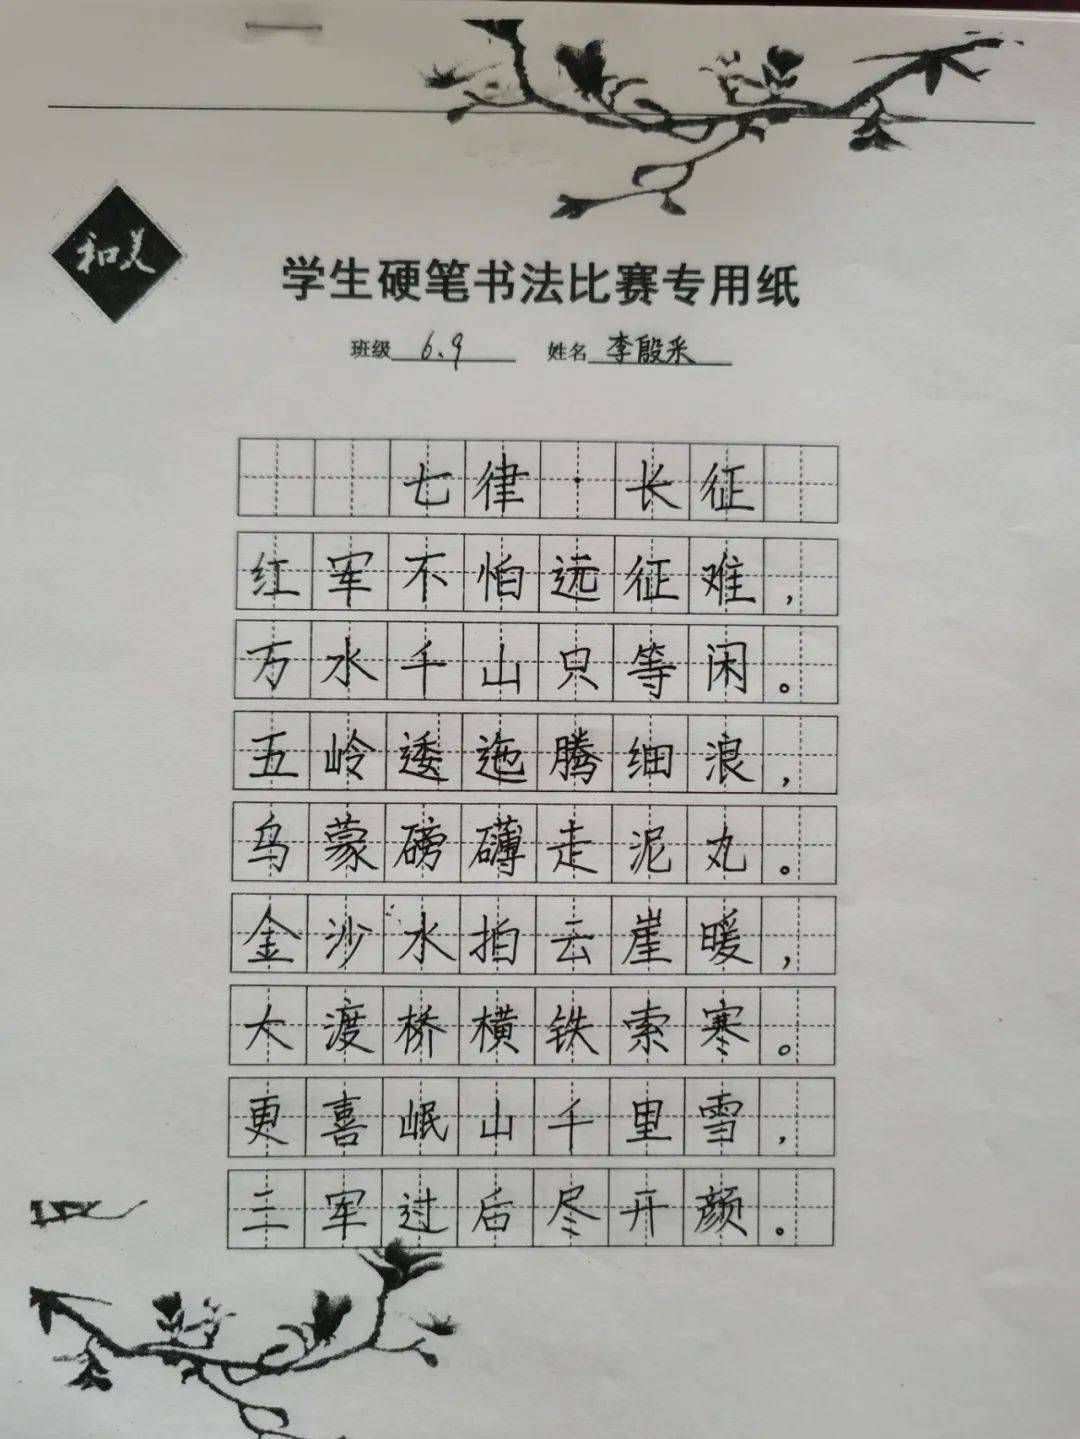 和美
学生硬笔书法比赛专用纸
班级 6.9 姓名 李殷采
七律·长征
红军不怕远征难，
万水千山只等闲。
五岭逶迤腾细浪，
乌蒙磅礴走泥丸。
金沙水拍云崖暖，
大渡桥横铁索寒。
更喜岷山千里雪，
三军过后尽开颜。